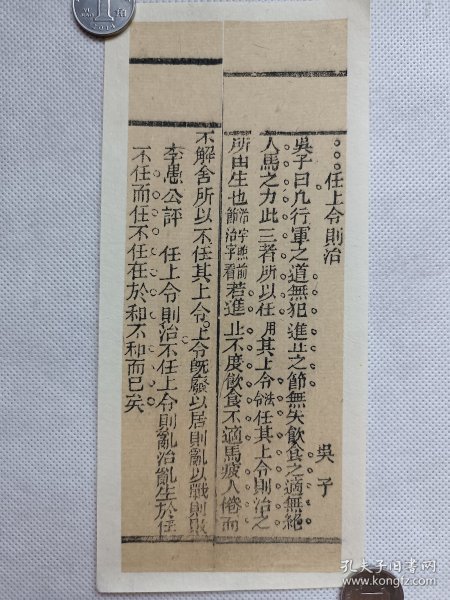 任上令則治
吳子
吳子曰凡行軍之道無犯進止之節無失飲食之適無絕
人馬之力此三者所以任用其上令法令任其上令則治之
所由生也治字照前節治字看若進止不度飲食不適馬疲人倦而
不解舍所以不任其上令上令既廢以居則亂以戰則敗
李愚公評 任上令則治不任上令則亂治亂生於任
不任而任不任在於和不和而已矣
孔夫子旧书网
www.kongfz.com